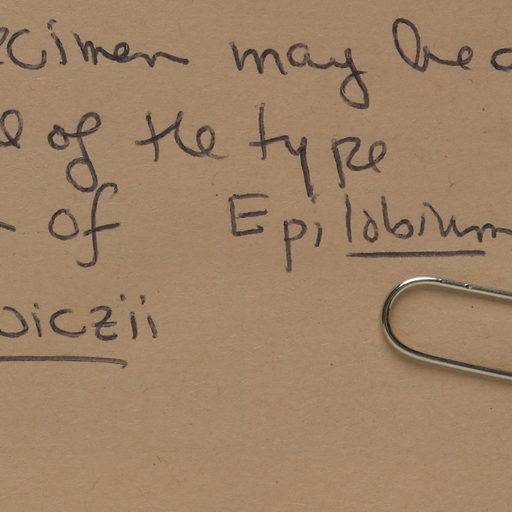 ecimen may be a
l of the type
of Epilobium
wiczii